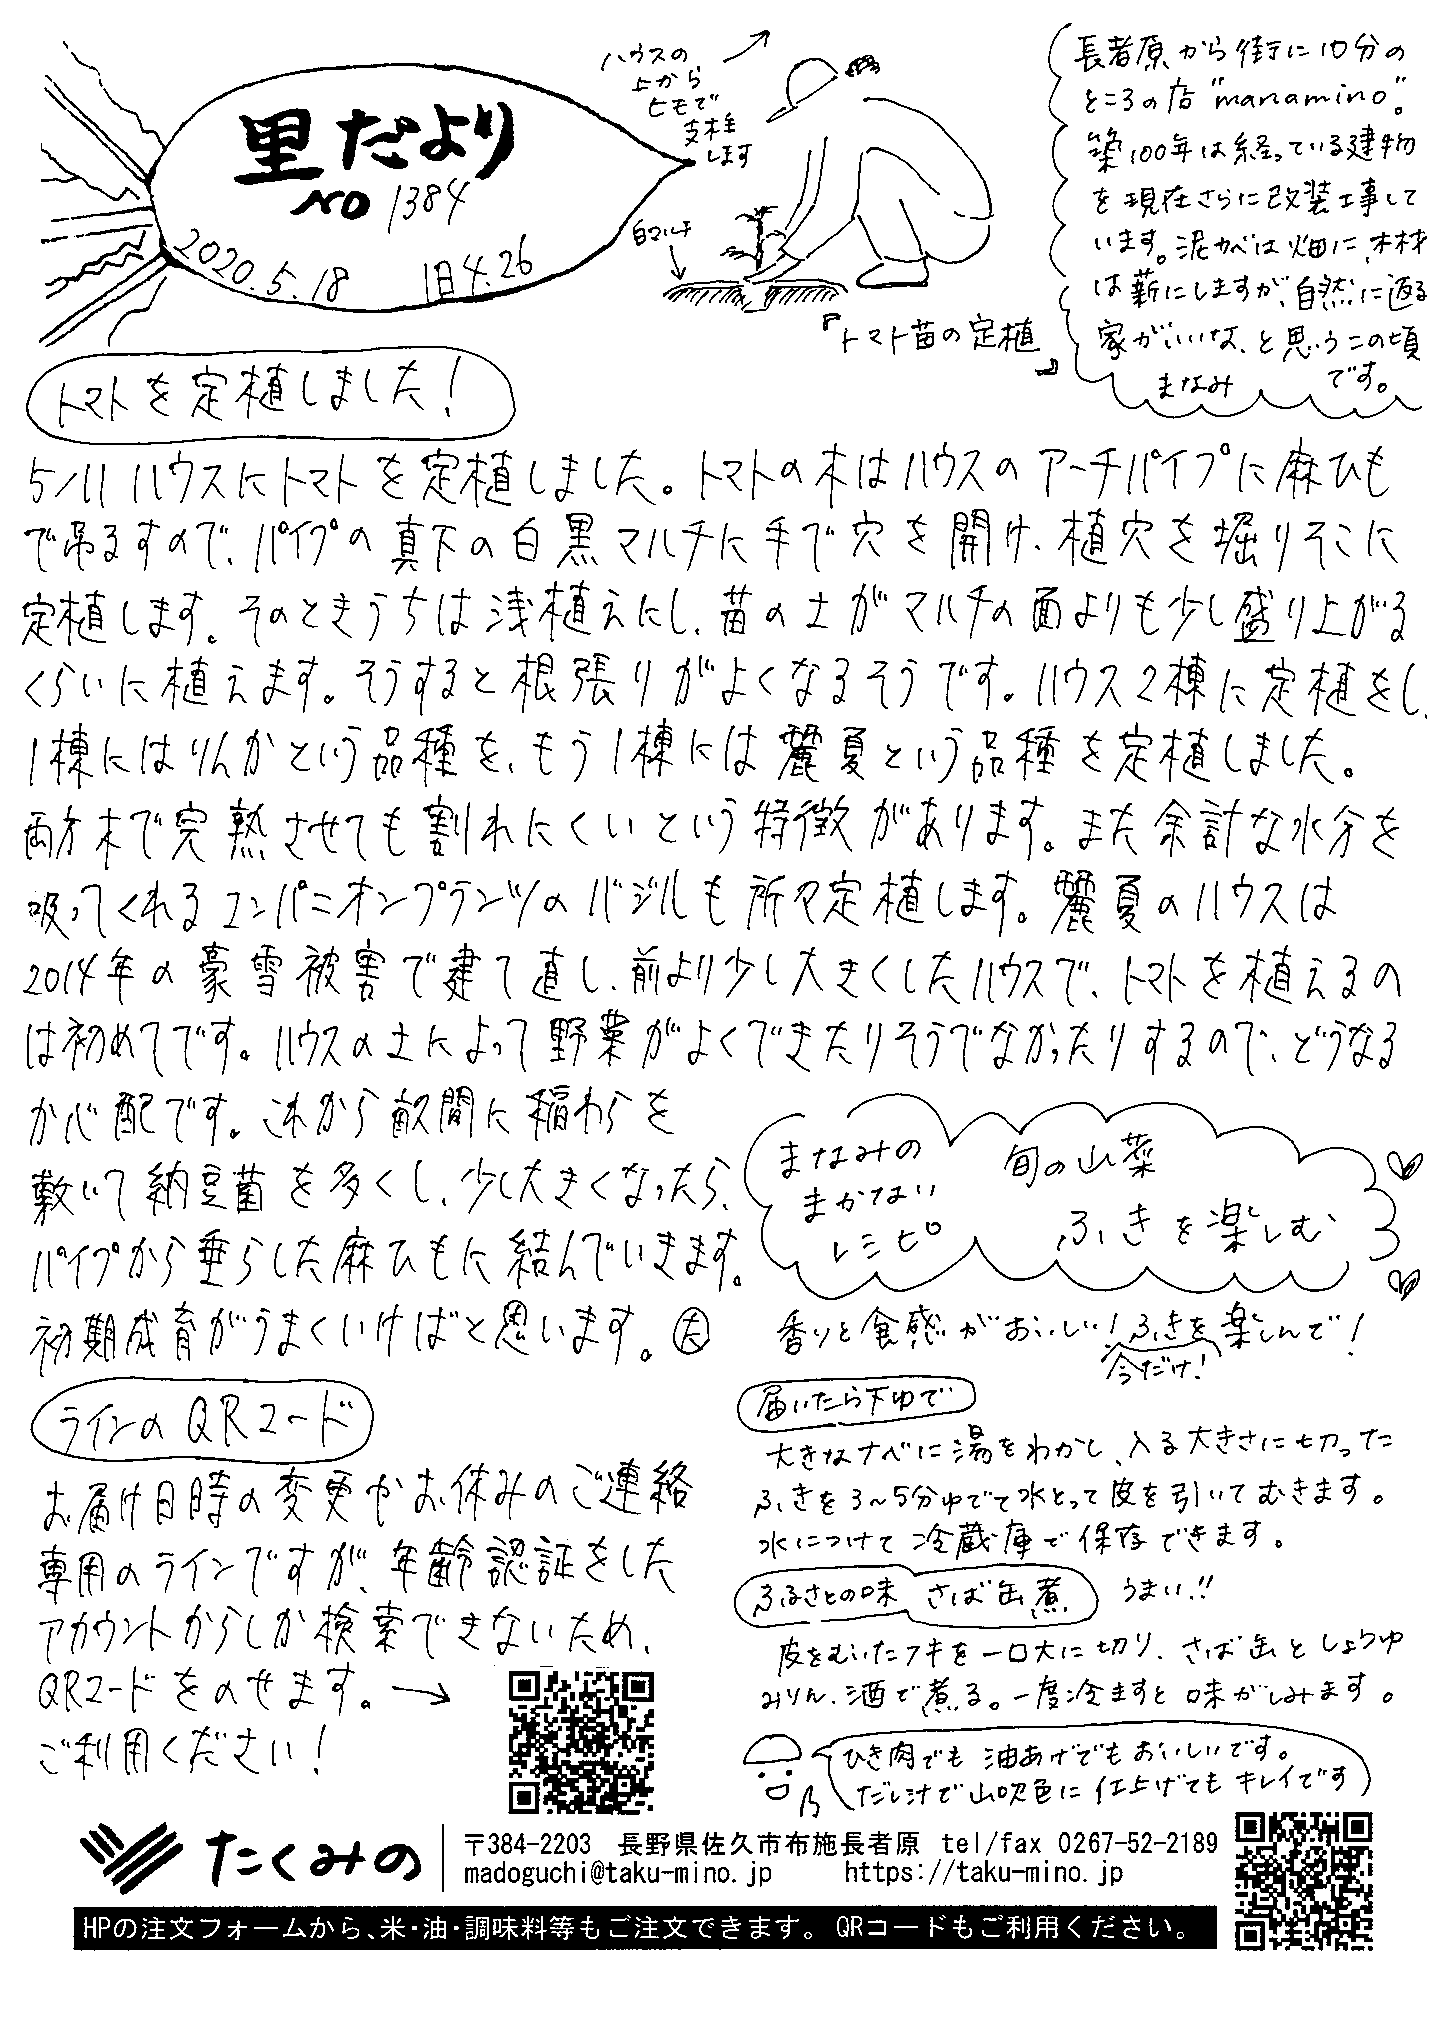 里だより
NO 1384
2020.5.18 旧4.26
ハウスの
上から
ヒモで
支柱
します
白マルチ
『トマト苗の定植』
長者原から街に10分の
ところの店"manamino"。
築100年は経っている建物
を現在さらに改装工事して
います。泥かべは畑に、木材
は薪にしますが、自然に返る
家がいいな、と思うこの頃
です。
まなみ
トマトを定植しました!
5/11 ハウスにトマトを定植しました。トマトの木はハウスのアーチパイプに麻ひも
で吊るすので、パイプの真下の白黒マルチに手で穴を開け、植穴を堀りそこに
定植します。そのときうちは浅植えにし、苗の土がマルチの面よりも少し盛り上がる
くらいに植えます。そうすると根張りがよくなるそうです。ハウス2棟に定植をし、
1棟にはりんかという品種を、もう1棟には麗夏という品種を定植しました。
両方木で完熟させても割れにくいという特徴があります。また余計な水分を
吸ってくれるコンパニオンプランツのバジルも所々定植します。麗夏のハウスは
2014年の豪雪被害で建て直し、前より少し大きくしたハウスで、トマトを植えるの
は初めてです。ハウスの土によって野菜がよくできたりそうでなかったりするので、どうなる
か心配です。これから畝間に稲わらを
敷いて納豆菌を多くし、少し大きくなったら、
パイプから垂らした麻ひもに結んでいきます。
初期成育がうまくいけばと思います。
ラインのQRコード
お届け日時の変更やお休みのご連絡
専用のラインですが、年齢認証をした
アカウントからしか検索できないため、
QRコードをのせます。→
ご利用ください!
まなみの
まかない
レシピ
旬の山菜
ふきを楽しむ
香りと食感がおいしい!ふきを楽しんで!
今だけ!
届いたら下ゆで
大きなナベに湯をわかし、入る大きさに切った
ふきを3~5分ゆでて水とって皮を引いてむきます。
水につけて冷蔵庫で保存できます。
ふるさとの味 さば缶煮 うまい!!
皮をむいたフキを一口大に切り、さば缶としょうゆ
みりん、酒で煮る。一度冷ますと味がしみます。
ひき肉でも油あげでもおいしいです。
だし汁で山吹色に仕上げてもキレイです
たくみの
〒384-2203 長野県佐久市布施長者原 tel/fax 0267-52-2189
madoguchi@taku-mino.jp https://taku-mino.jp
HPの注文フォームから、米・油・調味料等もご注文できます。QRコードもご利用ください。